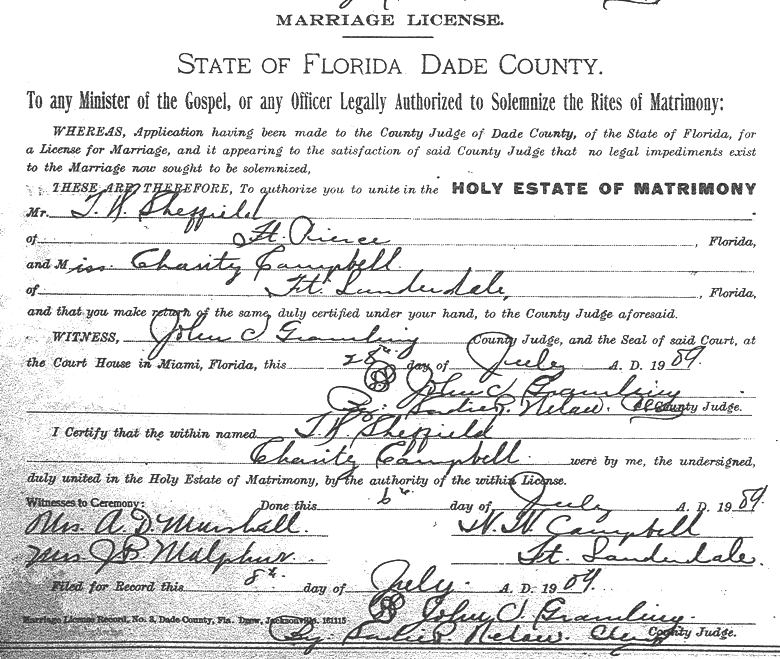 MARRIAGE LICENSE.
STATE OF FLORIDA DADE COUNTY.
To any Minister of the Gospel, or any Officer Legally Authorized to Solemnize the Rites of Matrimony:
WHEREAS, Application having been made to the County Judge of Dade County, of the State of Florida, for
a License for Marriage, and it appearing to the satisfaction of said County Judge that no legal impediments exist
to the Marriage now sought to be solemnized,
THESE ARE THEREFORE, To authorize you to unite in the HOLY ESTATE OF MATRIMONY
Mr. T. W. Sheffield
of Ft. Pierce, Florida,
and Miss. Charity Campbell
of Ft. Lauderdale, Florida,
and that you make return of the same, duly certified under your hand, to the County Judge aforesaid.
WITNESS, John C Gramling County Judge, and the Seal of said Court, at
the Court House in Miami, Florida, this day of July A. D. 1909.
John C Gramling
County Judge.
I Certify that the within named T. W. Sheffield
Charity Campbell were by me, the undersigned,
duly united in the Holy Estate of Matrimony, by the authority of the within License.
Witnesses to Ceremony: Done this 6th day of July A. D. 1909.
Mrs. A. D. Marshall. Campbell
Mrs J B Malphur. Ft. Lauderdale.
Filed for Record this 8th day of July. A. D. 1909.
John C Gramling.
Marriage License Record, No. 3, Dade County, Fla. Drew, Jacksonville. 161115
County Judge.